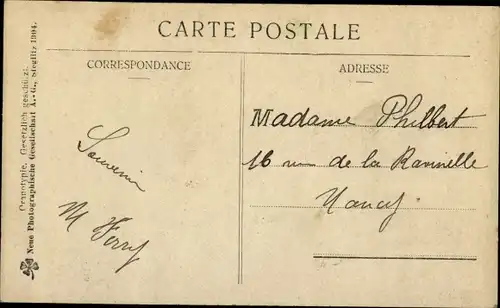 CARTE POSTALE
CORRESPONDANCE
Souvenir
M Ferry
ADRESSE
Madame Philbert
16 rue de la Ravinelle
Nancy
Gesetzlich geschützt.
Neue Photographische Gesellschaft A.-G., Steglitz 1904.